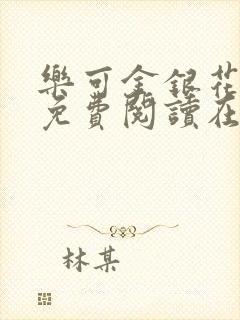 樂可金銀花
免費閱讀在
林某